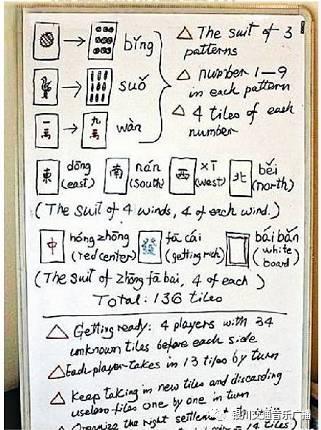 → bǐng
→ suǒ
一萬 → 九萬 wàn
△ The suit of 3 patterns
△ number 1—9 in each pattern
△ 4 tiles of each number
東 dōng (east) 南 nán (south) 西 xī (west) 北 běi (north)
(The suit of 4 winds, 4 of each wind.)
中 hóng zhōng (red center) 發 fā cái (getting rich) bái bǎn (white board)
(The suit of zhōng fā bái, 4 of each)
Total: 136 tiles
△ Getting ready: 4 players with 34
unknown tiles before each side
△ Each player takes in 13 tiles by turn
△ Keep taking in new tiles and discarding
useless tiles one by one in turn
Organize the right
14 tiles)
银川交通音乐广播